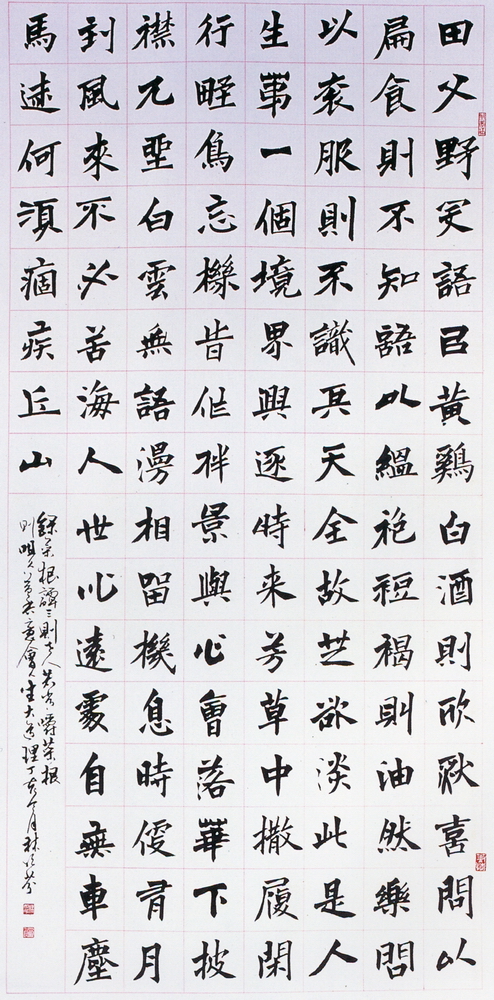 田父野叟語以黃鷄白酒則欣然喜問以
鼎食則不知語以縕袍裋褐則油然樂問
以袞服則不識其天全故其欲淡此是人
生第一個境界興逐時来芳草中撒履閑
行野鳥忘機旹作伴景與心會落華下披
襟兀坐白雲無語漫相留機息時便有月
到風來不必苦海人世心遠處自無車塵
馬迹何須痼疾丘山
錄菜根譚三則古人嚼菜根
則咀會人生大道理丁亥